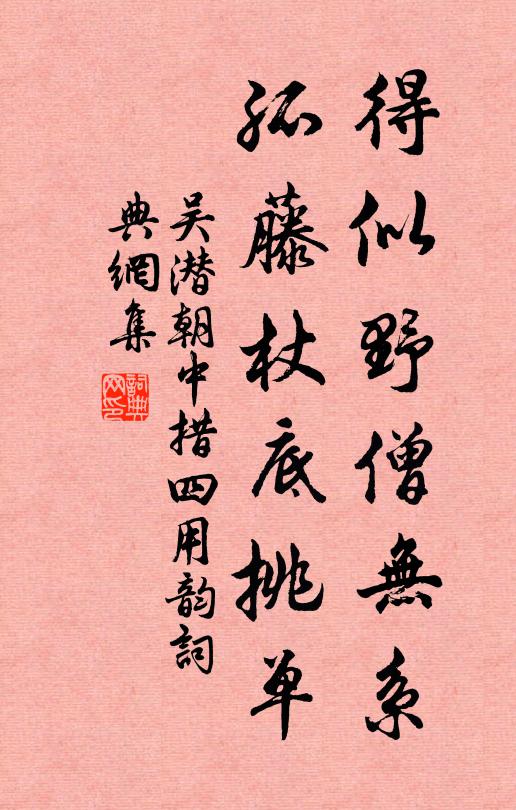 得似野僧無系
孤藤杖底挑单
吴潜朝中措四用韵詞
典網集
詞典
网印